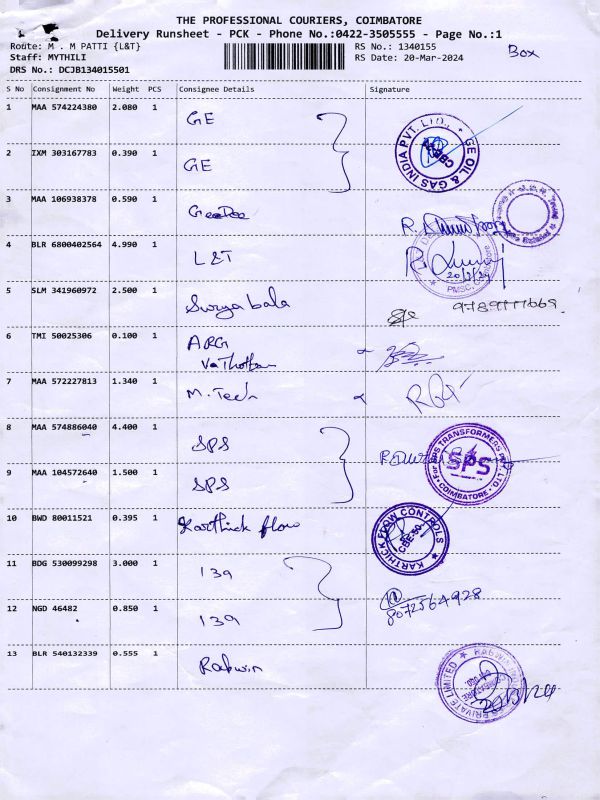 THE PROFESSIONAL COURIERS, COIMBATORE
Delivery Runsheet - PCK - Phone No.:0422-3505555 - Page No.:1
Route: M . M PATTI {L&T}
RS No.: 1340155
Box
Staff: MYTHILI
RS Date: 20-Mar-2024
DRS No.: DCJB134015501
S No Consignment No Weight PCS Consignee Details Signature
1 MAA 574224380 2.080 1 GE
GE OIL & GAS INDIA PVT. LTD.
2 IXM 303167783 0.390 1 GE
3 MAA 106938378 0.590 1
4 BLR 6800402564 4.990 1 L&T
20/3/24
PMSC,
5 SLM 341960972 2.500 1 Surya bala
6 TMI 50025306 0.100 1 ARG
7 MAA 572227813 1.340 1 M. Tech
8 MAA 574886040 4.400 1 SPS
For SPS TRANSFORMERS PVT. LTD.
SPS
COIMBATORE
9 MAA 104572640 1.500 1 SPS
10 BWD 80011521 0.395 1 Karthick flow
KARTHICK FLOW CONTROLS
CBE-50
11 BDG 530099298 3.000 1 139
12 NGD 46482 0.850 1 139
8072564928
13 BLR 540132339 0.555 1 Rabwin
RABWIN
PRIVATE LIMITED